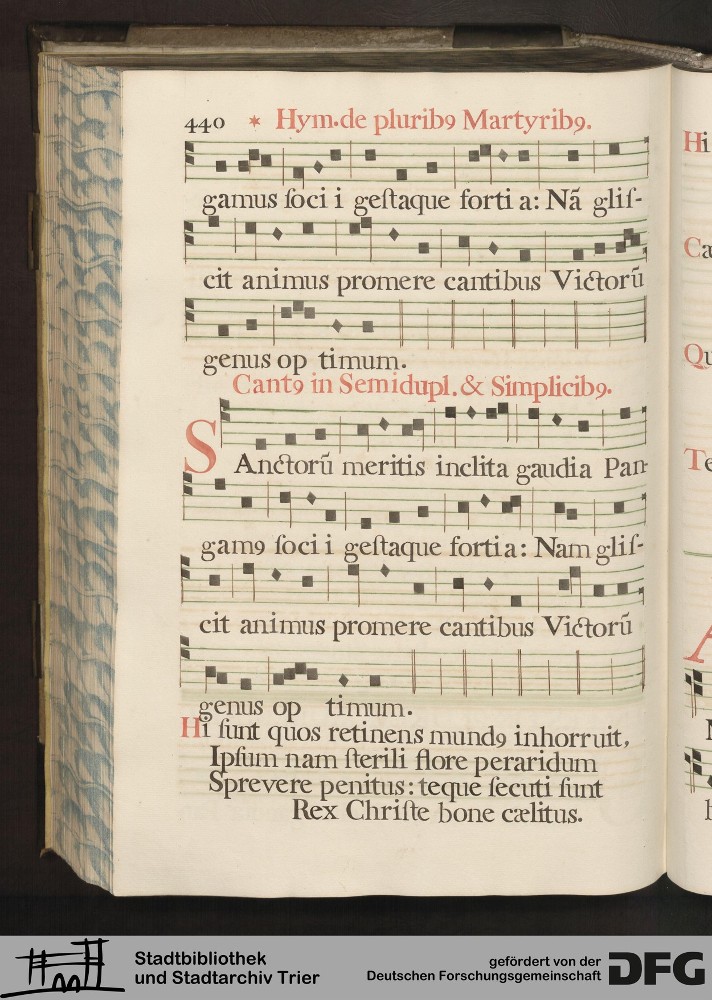 440 * Hym. de plurib9 Martyrib9.
gamus ſoci i geſtaque forti a: Nã gliſ-
cit animus promere cantibus Victorũ
genus op timum.
Cant9 in Semidupl. & Simplicib9.
SAnctorũ meritis inclita gaudia Pan-
gam9 ſoci i geſtaque forti a: Nam gliſ-
cit animus promere cantibus Victorũ
genus op timum.
Hi ſunt quos retinens mund9 inhorruit,
Ipſum nam ſterili flore peraridum
Sprevere penitus: teque ſecuti ſunt
Rex Chriſte bone cælitus.
Hi
Cæ
Qu
Te
A
Stadtbibliothek
und Stadtarchiv Trier
gefördert von der
Deutschen Forschungsgemeinschaft
DFG